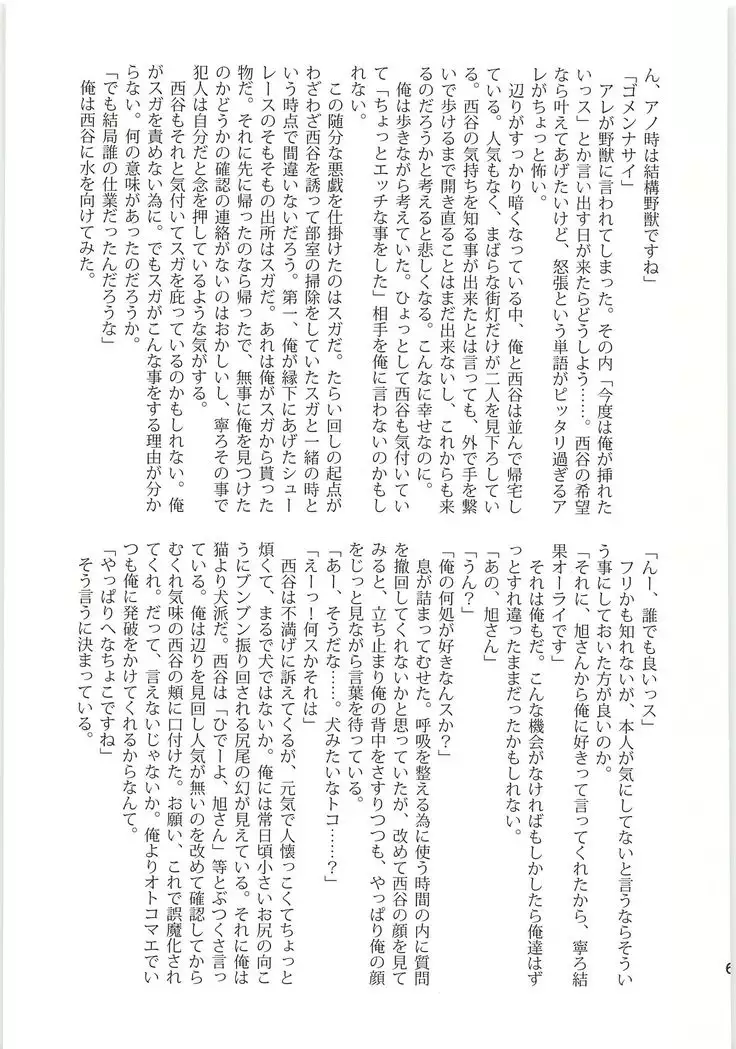 ん、アノ時は結構野獣ですね」
「ゴメンナサイ」
アレが野獣に言われてしまった。その内「今度は俺が挿れた
いっス」とか言い出す日が来たらどうしよう……。西谷の希望
なら叶えてあげたいけど、怒張という単語がピッタリ過ぎるア
レがちょっと怖い。
辺りがすっかり暗くなっている中、俺と西谷は並んで帰宅し
ている。人気もなく、まばらな街灯だけが二人を見下ろしてい
る。西谷の気持ちを知る事が出来たとは言っても、外で手を繋
いで歩けるまで開き直ることはまだ出来ないし、これからも来
るのだろうかと考えると悲しくなる。こんなに幸せなのに。
俺は歩きながら考えていた。ひょっとして西谷も気付いてい
て「ちょっとエッチな事をした」相手を俺に言わないのかもし
れない。
この随分な悪戯を仕掛けたのはスガだ。たらい回しの起点が
わざわざ西谷を誘って部室の掃除をしていたスガと一緒の時と
いう時点で間違いないだろう。第一、俺が縁下にあげたシュー
レースのそもそもの出所はスガだ。あれは俺がスガから貰った
物だ。それに先に帰ったのなら帰ったで、無事に俺を見つけた
のかどうかの確認の連絡がないのはおかしいし、寧ろその事で
犯人は自分だと念を押しているような気がする。
西谷もそれと気付いてスガを庇っているのかもしれない。俺
がスガを責めない為に。でもスガがこんな事をする理由が分か
らない。何の意味があったのだろうか。
「でも結局誰の仕業だったんだろうな」
俺は西谷に水を向けてみた。
「んー、誰でも良いっス」
フリかも知れないが、本人が気にしてないと言うならそうい
う事にしておいた方が良いのか。
「それに、旭さんから俺に好きって言ってくれたから、寧ろ結
果オーライです」
それは俺もだ。こんな機会がなければもしかしたら俺達はず
っとすれ違ったままだったかもしれない。
「あの、旭さん」
「うん？」
「俺の何処が好きなんスか？」
息が詰まってむせた。呼吸を整える為に使う時間の内に質問
を撤回してくれないかと思っていたが、改めて西谷の顔を見て
みると、立ち止まり俺の背中をさすりつつも、やっぱり俺の顔
をじっと見ながら言葉を待っている。
「あー、そうだな……。犬みたいなトコ……？」
「えーっ！何スかそれは」
西谷は不満げに訴えてくるが、元気で人懐っこくてちょっと
煩くて、まるで犬ではないか。俺には常日頃小さいお尻の向こ
うにブンブン振り回される尻尾の幻が見えている。それに俺は
猫より犬派だ。西谷は「ひでーよ、旭さん」等とぶつくさ言っ
ている。俺は辺りを見回し人気が無いのを改めて確認してから
むくれ気味の西谷の頬に口付けた。お願い、これで誤魔化され
てくれ。だって、言えないじゃないか。俺よりオトコマエでい
つも俺に発破をかけてくれるからなんて。
「やっぱりへなちょこですね」
そう言うに決まっている。
6